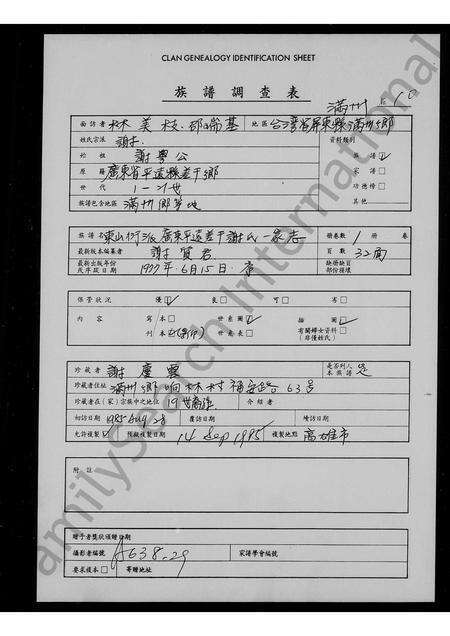 CLAN GENEALOGY IDENTIFICATION SHEET
族譜調查表
滿州 10
面訪者 林美枝、邵瑞基 地區 台灣省屏東縣滿州鄉
姓氏宗派 謝 資料類別
始祖 謝粵公 族譜 ☑
原籍 廣東省平遠縣差干鄉 家譜 □
世代 1-21世 功德榜 □
族譜包含地區 滿州鄉等地 其他
族譜名 東山衍派廣東平遠差干謝氏一家志 冊卷數 1 冊 卷
最新版本編纂者 謝賢君 頁數 32面
最新出版年份或序跋日期 1977年6月15日 缺冊缺頁部份損壞
保管狀況 優☑ 良□ 可□ 劣□
內容 寫本□ 世系圖☑ 插圖☑
刊本☑ 世系表□ 有關婦女資料□
(非僅姓氏)
珍藏者 謝慶雲 是否列入本族譜 是
珍藏者住址 滿州鄉响林村福安路63号
珍藏者在(家)宗族中之地位 19世裔孫 介紹者
初訪日期 1985 Aug 28 覆訪日期 續訪日期
允許複製☑ 預擬複製日期 14 Sep 1985 複製地點 高雄市
附註
贈予者獎狀頒贈日期
攝影者編號 A638.29 家譜學會編號
要求複本□ 寄贈地址
FamilySearch International